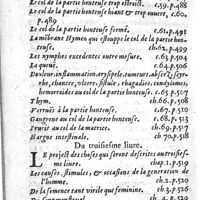 Le col de la partie honteuse trop estroit. c.59.p.488
Le col de la partie honteuse hiant & trop ouuert, c.60.
p.489
Le col de la partie honteuse fermé, c.61.p.491
La mẽbrane Hymen qui estouppe le col de la partie hon-
teuse. ch.62.p.499
Les nymphes excedentes outre mesure, c.63.p.504
La queuë. c.64.p.506
Douleur, inflammation, erysipele, tumeur, absce, scyr-
rhe, chancre, vlcere, fistule, rhagadies, condylomes,
hemorroides au col de la partie honteuse. c.65.p.507
Thym. ch.66.p.508
Verruës à la partie honteuse. c.67.p.510
Gangrene au col de la partie honteuse. ch.68.p.516
Prurit au col de la matrice. ch.69.p.517
Largue intestinale, ch.70.p.518
Du troisiesme liure.
LE project des choses qui seront descrites au troisies-
me liure. chap.1.p.519
Les causes, stimules, & occasions de la generation de
l'homme. ch.2.p.520
De la semence tant virile que feminine. ch.3.p.526
ch.4.p.529